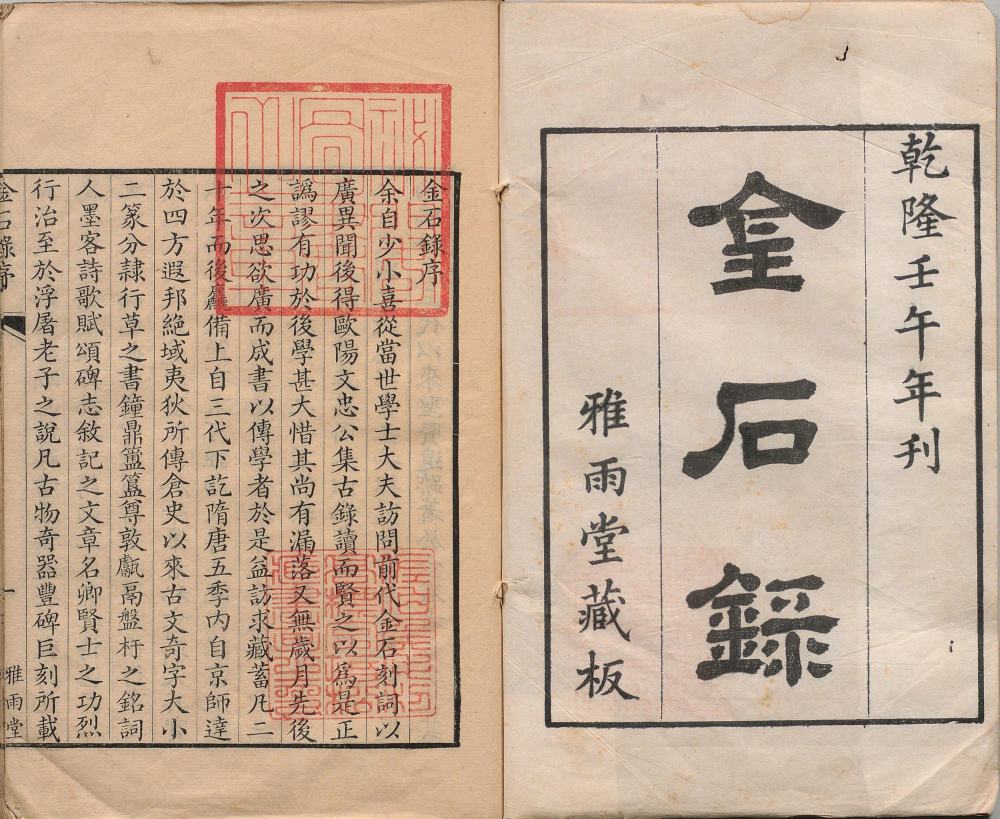 乾隆壬午年刊
金石錄
雅雨堂藏板
金石錄序
余自少小喜從當世學士大夫訪問前代金石刻詞以
廣異聞後得歐陽文忠公集古錄讀而賢之以爲是正
譌謬有功於後學甚大惜其尚有漏落又無歲月先後
之次思欲廣而成書以傳學者於是益訪求藏蓄凡二
十年而後麤備上自三代下訖隋唐五季內自京師達
於四方遐邦絶域夷狄所傳倉史以來古文奇字大小
二篆分隷行草之書鐘鼎簠簋尊敦甗鬲盤杅之銘詞
人墨客詩歌賦頌碑志敘記之文章名卿賢士之功烈
行治至於浮屠老子之說凡古物奇器豐碑巨刻所載
金石錄序
一
雅雨堂